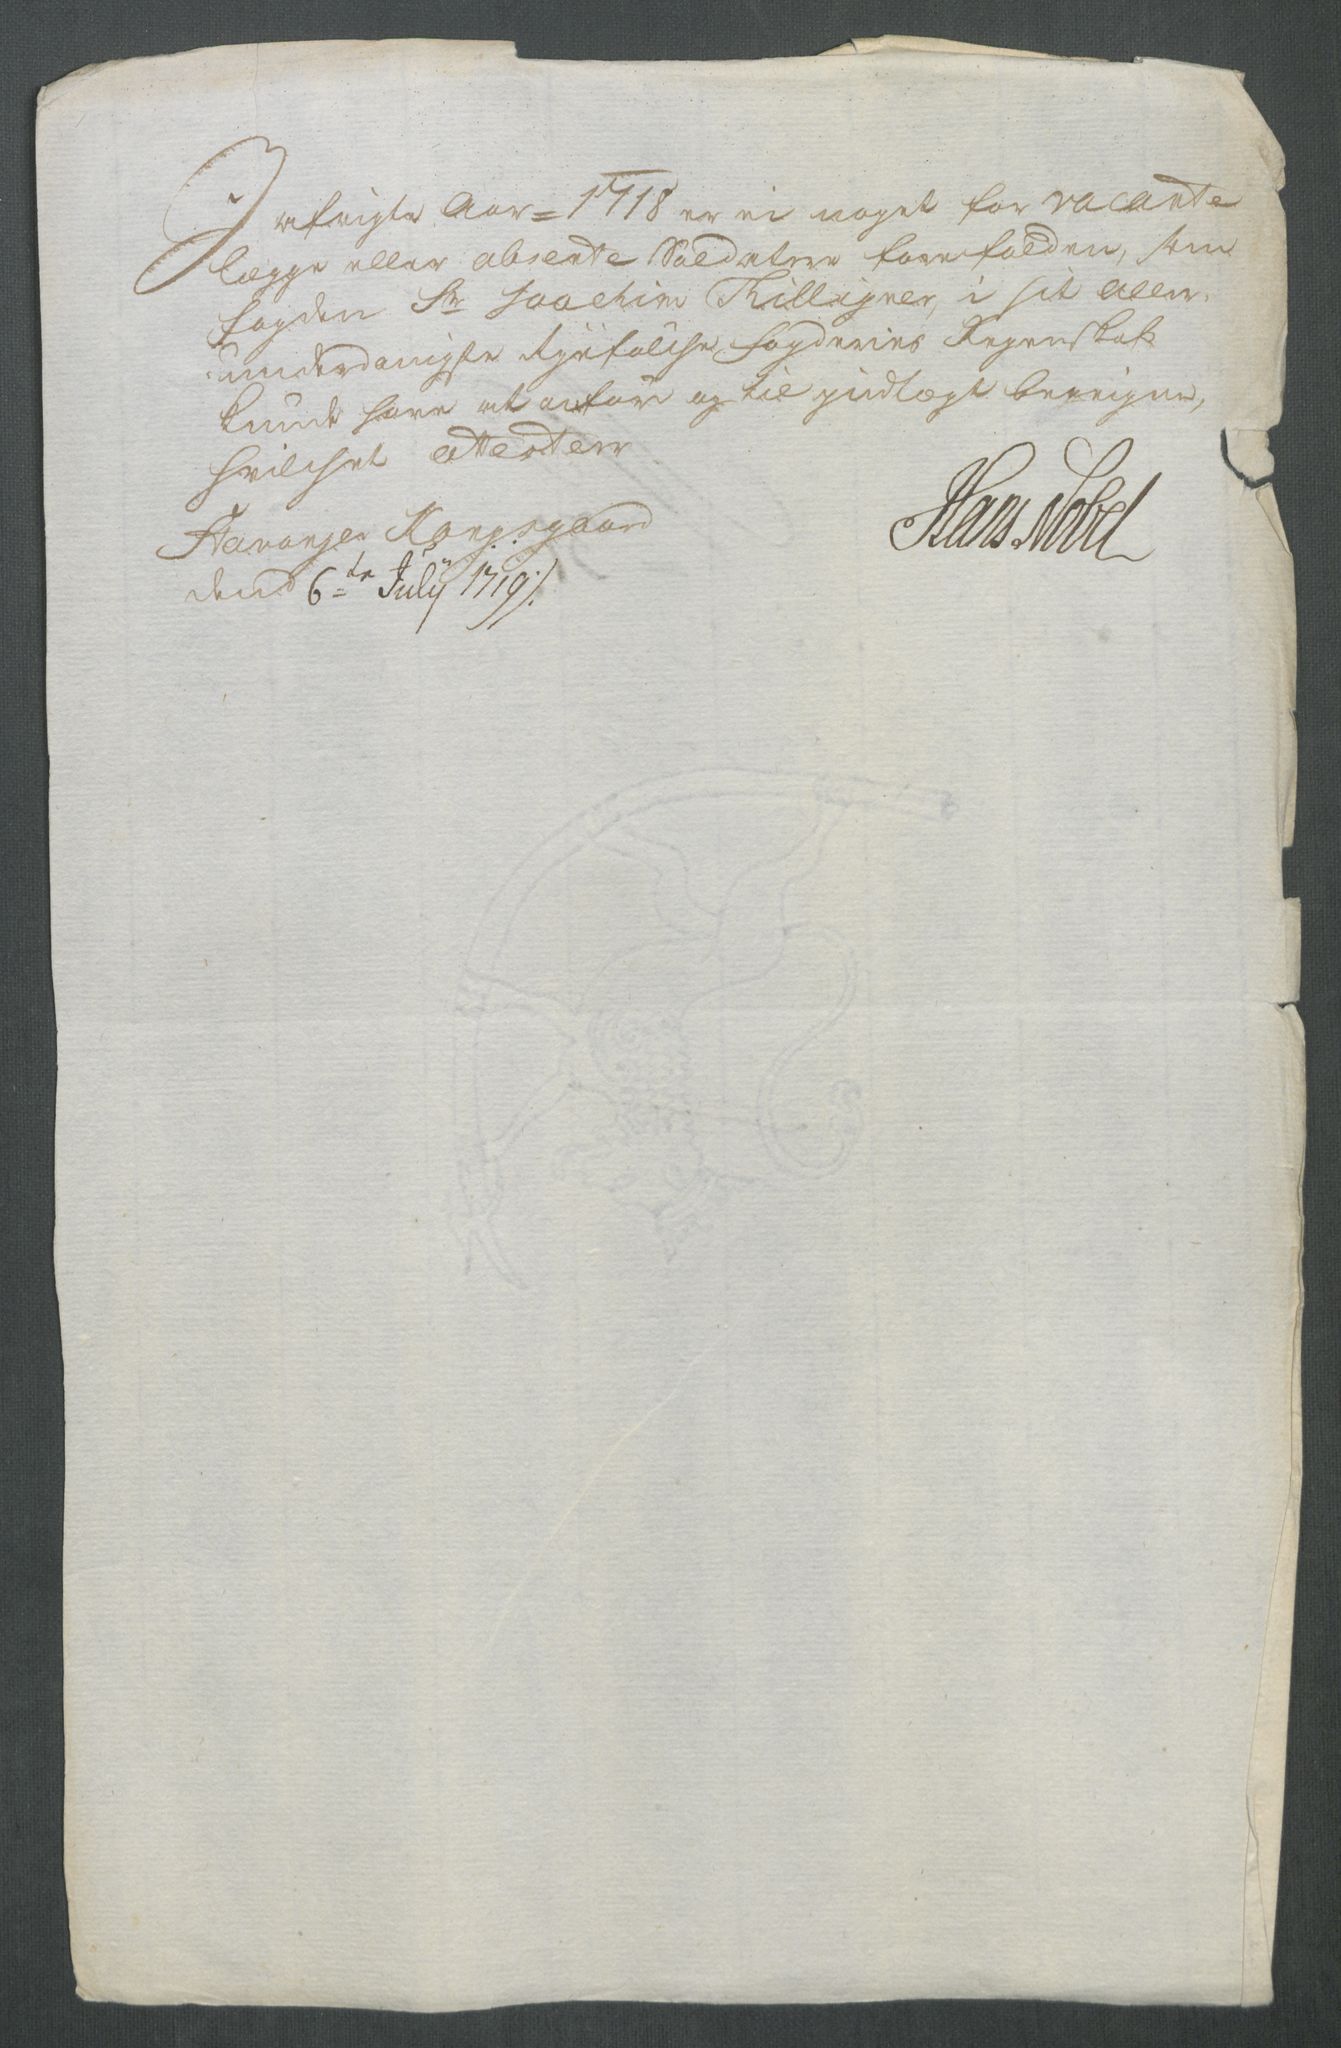 I afvigte Aar = 1718 er ei noget for vacante
lægge eller absente Soldatere forefalden, som
fogden Sr Joachim Thilligner, i sit aller,
underdanigste Ryefylche fogderies Regenskab
kunde have at anføre og til indtægt beregne,
hvilchet attesterer
Stavanger Kongsgaard
dend 6te July 1719 ./.
Hans Nobel